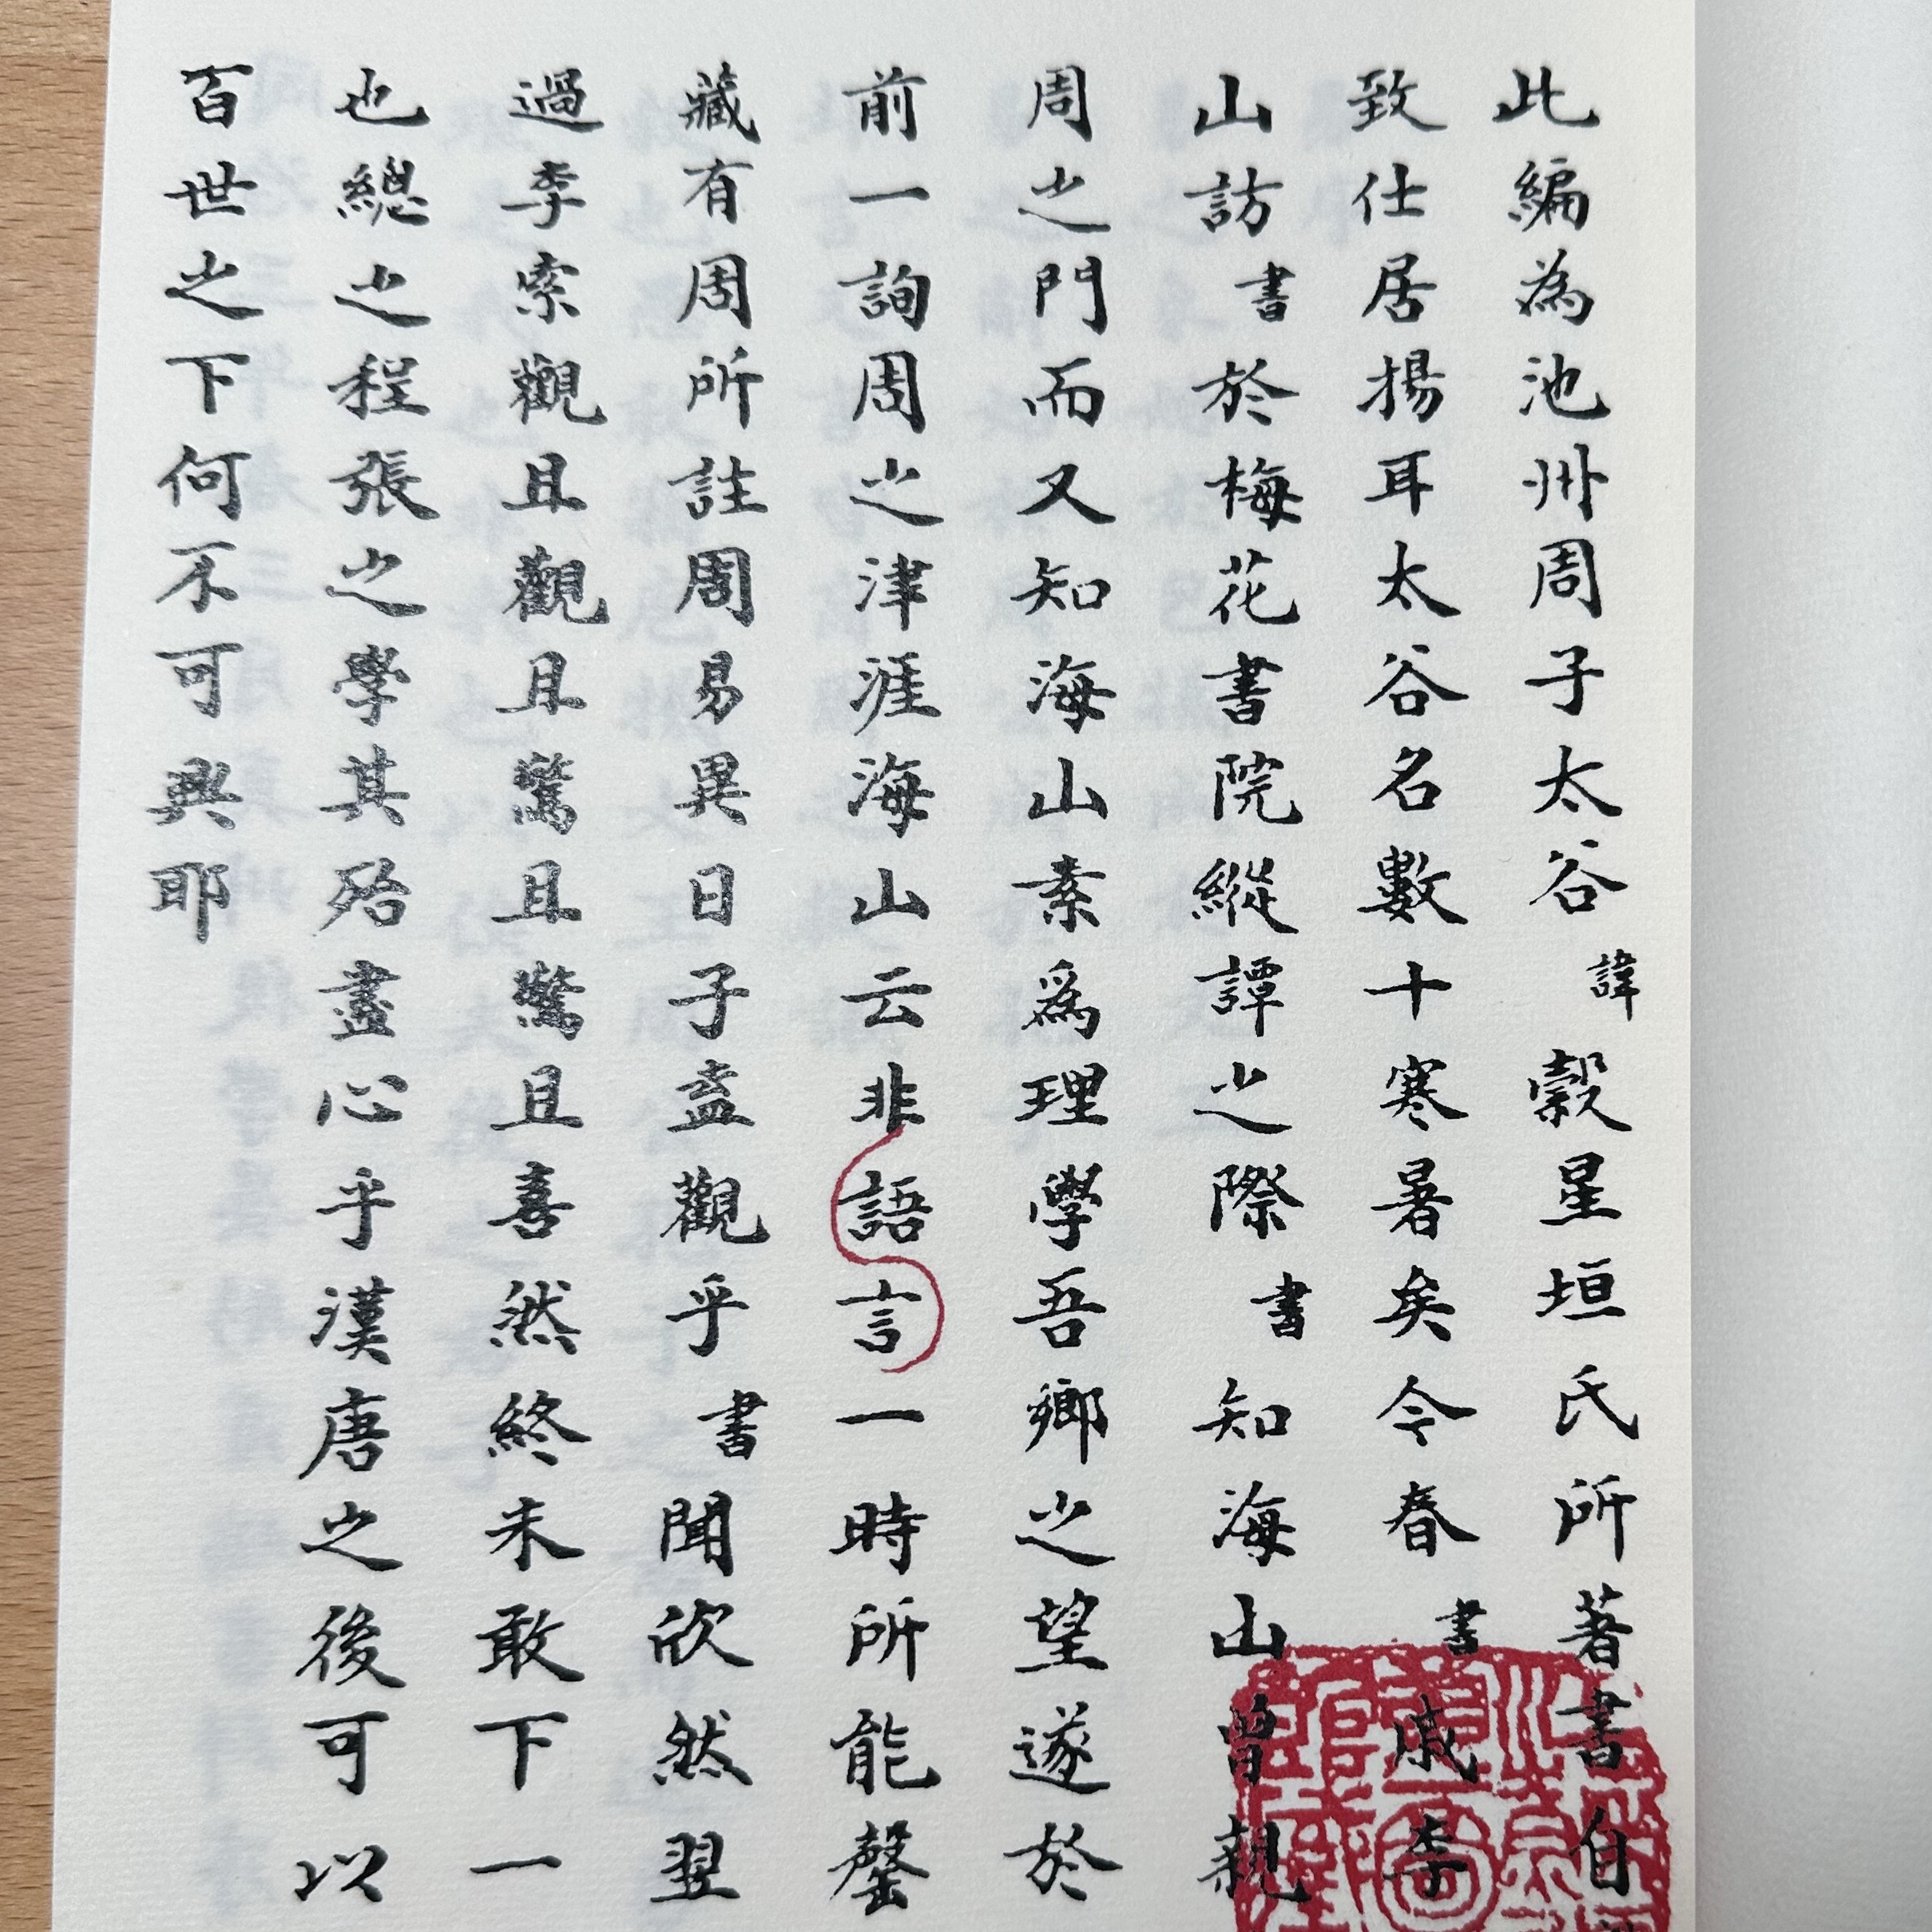 此編為池州周子太谷諱穀星垣氏所著書自
致仕居揚耳太谷名數十寒暑矣今春書戚李
山訪書於梅花書院縱譚之際書知海山曾親
周之門而又知海山素爲理學吾鄉之望遂於
前一詢周之津涯海山云非語言一時所能罄
藏有周所註周易異日子盍觀乎書聞欣然翌
過李索觀且觀且驚且驚且喜然終未敢下一
也總之程張之學其殆盡心乎漢唐之後可以
百世之下何不可興耶